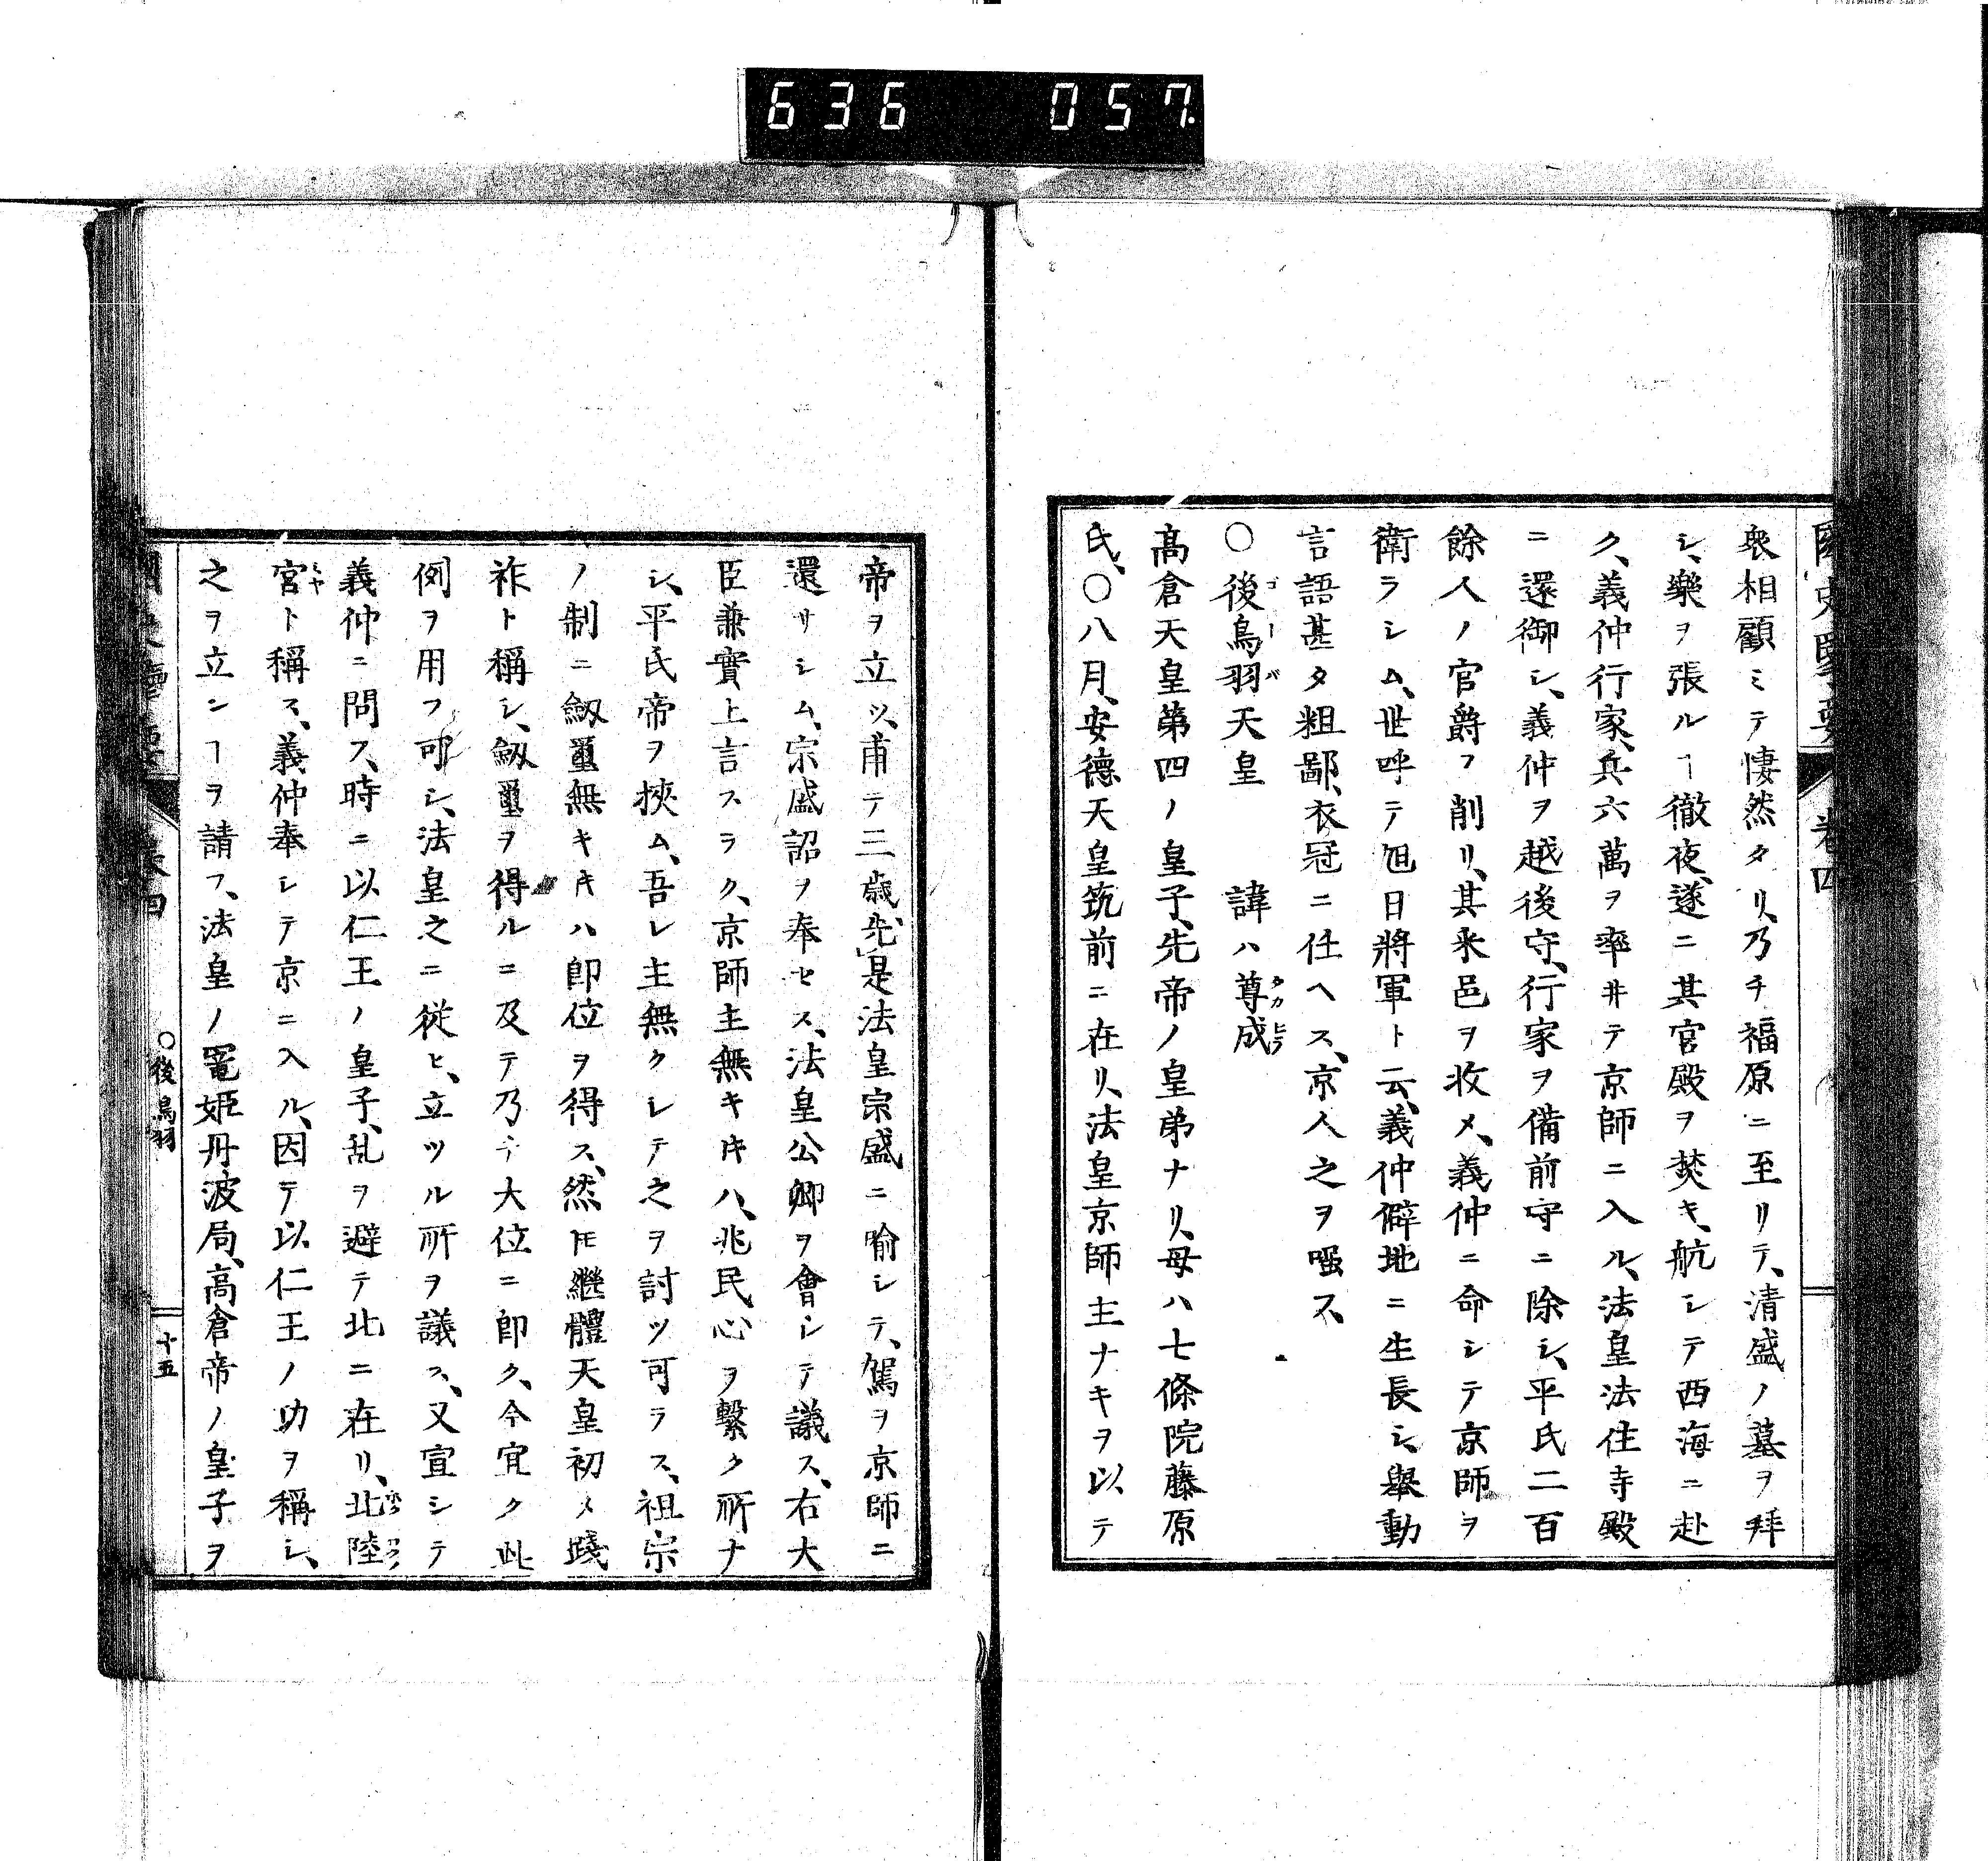 636 057
卷四
衆相顧ミテ悽然タリ、乃チ福原ニ至リテ、清盛ノ墓ヲ拜
シ、樂ヲ張ルヿ徹夜、遂ニ其官殿ヲ焚キ、航シテ西海ニ赴
ク、義仲行家、兵六萬ヲ率井テ京師ニ入ル、法皇法住寺殿
ニ還御シ、義仲ヲ越後守、行家ヲ備前守ニ除シ、平氏二百
餘人ノ官爵ヲ削リ、其釆邑ヲ收メ、義仲ニ命シテ京師ヲ
衛ラシム、世呼テ旭日將軍ト云、義仲僻地ニ生長シ、舉動
言語甚タ粗鄙、衣冠ニ任ヘス、京人之ヲ嗤ス、
〇後鳥羽天皇 諱ハ尊成
高倉天皇第四ノ皇子、先帝ノ皇弟ナリ、母ハ七條院藤原
氏、〇八月、安德天皇筑前ニ在リ、法皇京師主ナキヲ以テ
帝ヲ立ツ、甫テ三歳、先是法皇宗盛ニ喻シテ、駕ヲ京師ニ
還サシム、宗盛詔ヲ奉セス、法皇公卿ヲ會シテ議ス、右大
臣兼實上言スラク、京師主無キ𪜈ハ、兆民心ヲ繋ク所ナ
シ、平氏帝ヲ挾ム、吾レ主無クシテ之ヲ討ツ可ラス、祖宗
ノ制ニ劔璽無キ𪜈ハ卽位ヲ得ス、然𪜈繼體天皇初メ踐
祚ト稱シ、劔璽ヲ得ルニ及テ乃チ大位ニ卽ク、今宜ク此
例ヲ用フ可シ、法皇之ニ從ヒ、立ツル所ヲ議ス、又宣シテ
義仲ニ問フ、時ニ以仁王ノ皇子、乱ヲ避テ北ニ在リ、北陸
宮ト稱ス、義仲奉シテ京ニ入ル、因テ以仁王ノ功ヲ稱シ、
之ヲ立ンヿヲ請フ、法皇ノ寵姬丹波局、高倉帝ノ皇子ヲ
〇後鳥羽
十五